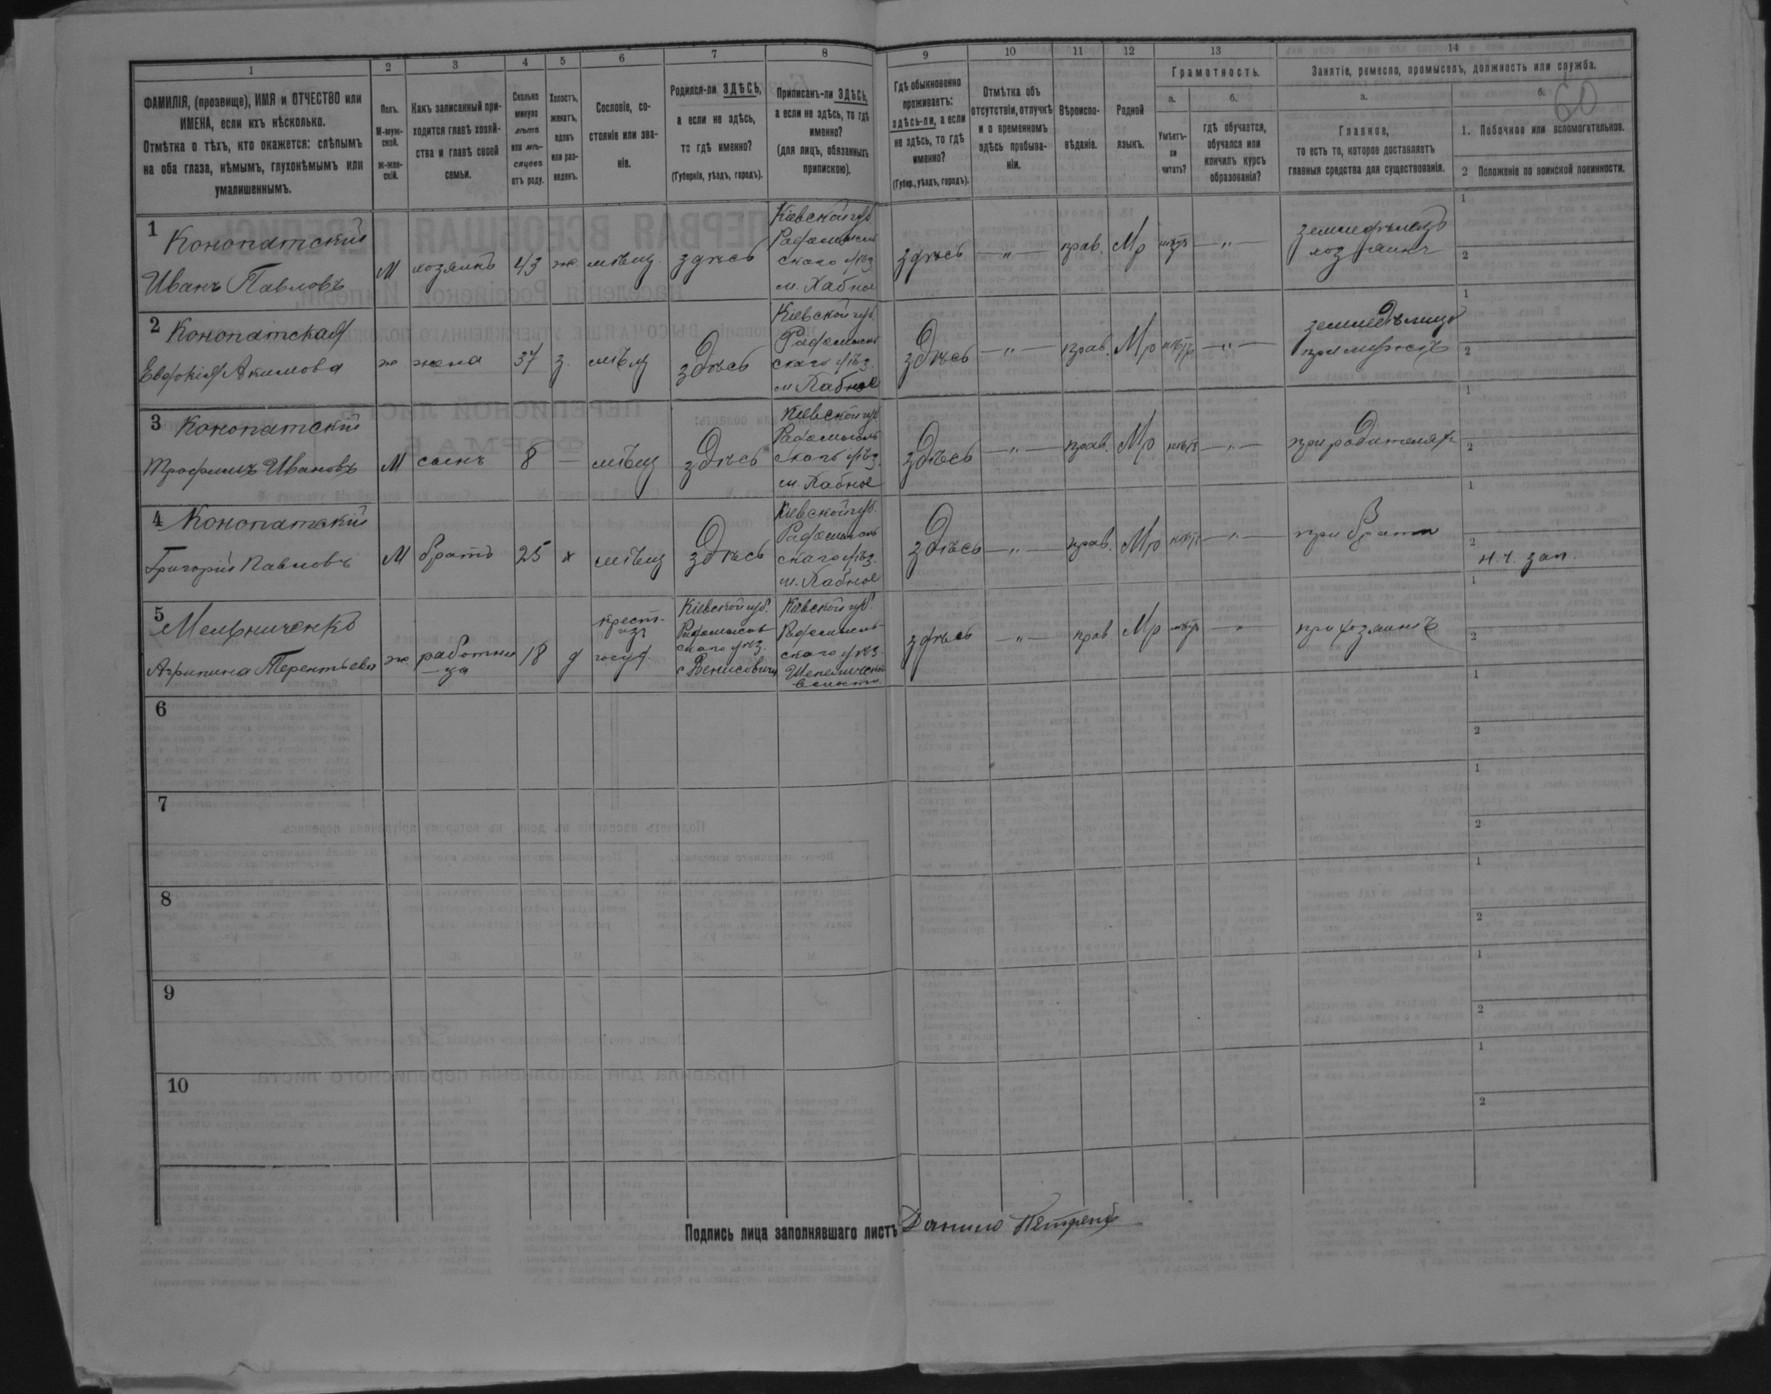 1 2 3 4 5 6 7 8 9 10 11 12 13 14
60
ФАМИЛІЯ, (прозвище), ИМЯ и ОТЧЕСТВО или
ИМЕНА, если ихъ нѣсколько.
Отмѣтка о тѣхъ, кто окажется: слѣпымъ
на оба глаза, нѣмымъ, глухонѣмымъ или
умалишеннымъ.
Полъ.
М-муж-
ской.
Ж-жен-
скій.
Какъ записанный при-
ходится главѣ хозяй-
ства и главѣ своей
семьи.
Сколько
минуло
лѣтъ
или мѣ-
сяцевъ
отъ роду.
Холостъ,
женатъ,
вдовъ
или раз-
веденъ.
Сословіе, со-
стояніе или зва-
ніе.
Родился-ли ЗДѢСЬ,
а если не здѣсь,
то гдѣ именно?
(Губернія, уѣздъ, городъ).
Приписанъ-ли ЗДѢСЬ,
а если не здѣсь, то гдѣ
именно?
(для лицъ, обязанныхъ
припискою).
Гдѣ обыкновенно
проживаетъ:
здѣсь-ли, а если
не здѣсь, то гдѣ
именно?
(Губер., уѣздъ, городъ).
Отмѣтка объ
отсутствіи, отлучкѣ
и о временномъ
здѣсь пребыва-
ніи.
Вѣроиспо-
вѣданіе.
Родной
языкъ.
Грамотность.
а.
Умѣетъ-
ли
читать?
б.
гдѣ обучается,
обучался или
кончилъ курсъ
образованія?
Занятіе, ремесло, промыселъ, должность или служба.
а.
Главное,
то есть то, которое доставляетъ
главныя средства для существованія.
б.
1. Побочное или вспомогательное.
2 Положеніе по воинской повинности.
1 Конопатскій
Иванъ Павловъ
М хозяинъ 43 ж мѣщ. здѣсь
Кіевской губ.
Радомысль
скаго уѣз.
м. Хабное
здѣсь — „ — прав. Мр нѣтъ — „ —
земледѣлецъ
хозяинъ
1
2
2 Конопатская
Евдокія Акимова
ж жена 37 з. мѣщ здѣсь
Кіевской губ.
Радомысль
скаго уѣз.
м. Хабное
здѣсь — „ — прав. Мр нѣтъ — „ —
при мужѣ
1
2
3 Конопатскій
Трофимъ Ивановъ
М сынъ 8 — мѣщ здѣсь
Кіевской губ
Радомысль
скаго уѣз.
м. Хабное
здѣсь — „ — прав. Мр нѣтъ — „ —
при родителях
1
2
4 Конопатскій
Григорій Павловъ
М братъ 25 х мѣщ здѣсь
Кіевской губ.
Радомысль
скаго уѣз.
м. Хабное
здѣсь — „ — прав. Мр нѣтъ — „ —
при брати
1
2
н. ч. зап.
5 Мельниченкъ
Агрипина Терентьева
ж. работни
ца
18 д
крест.
изъ
госуд.
Кіевской губ.
Радомысль
скаго уѣз.
Кіевской губ.
Радомысль-
скаго уѣз.
Шепеличской
волости
здѣсь — „ — прав Мр нѣтъ — „ —
при хозяинѣ
1
2
6
1
2
7
1
2
8
1
2
9
1
2
10
1
2
Подпись лица заполнявшаго листъ Данило Петренко